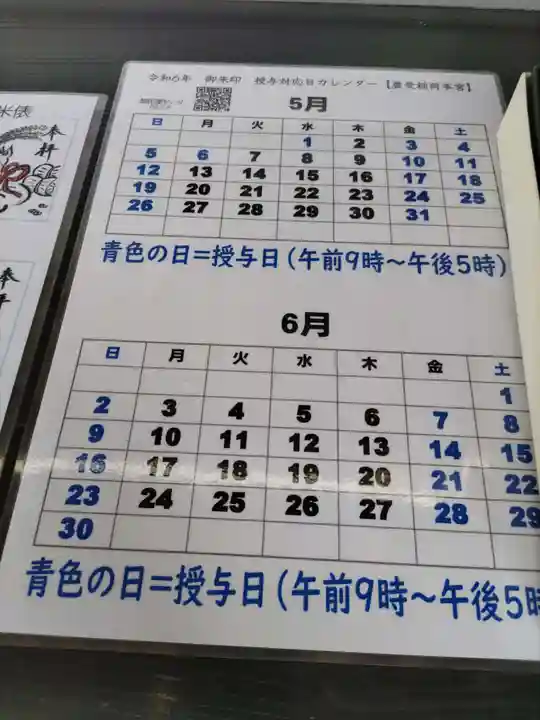 米俵
奉拝
奉拝
令和6年 御朱印 授与対応日カレンダー
5月
日 月 火 水 木 金 土
1 2 3 4
5 6 7 8 9 10 11
12 13 14 15 16 17 18
19 20 21 22 23 24 25
26 27 28 29 30 31
青色の日=授与日(午前9時~午後5時)
6月
日 月 火 水 木 金 土
1
2 3 4 5 6 7 8
9 10 11 12 13 14 15
16 17 18 19 20 21 22
23 24 25 26 27 28 29
30
青色の日=授与日(午前9時~午後5時